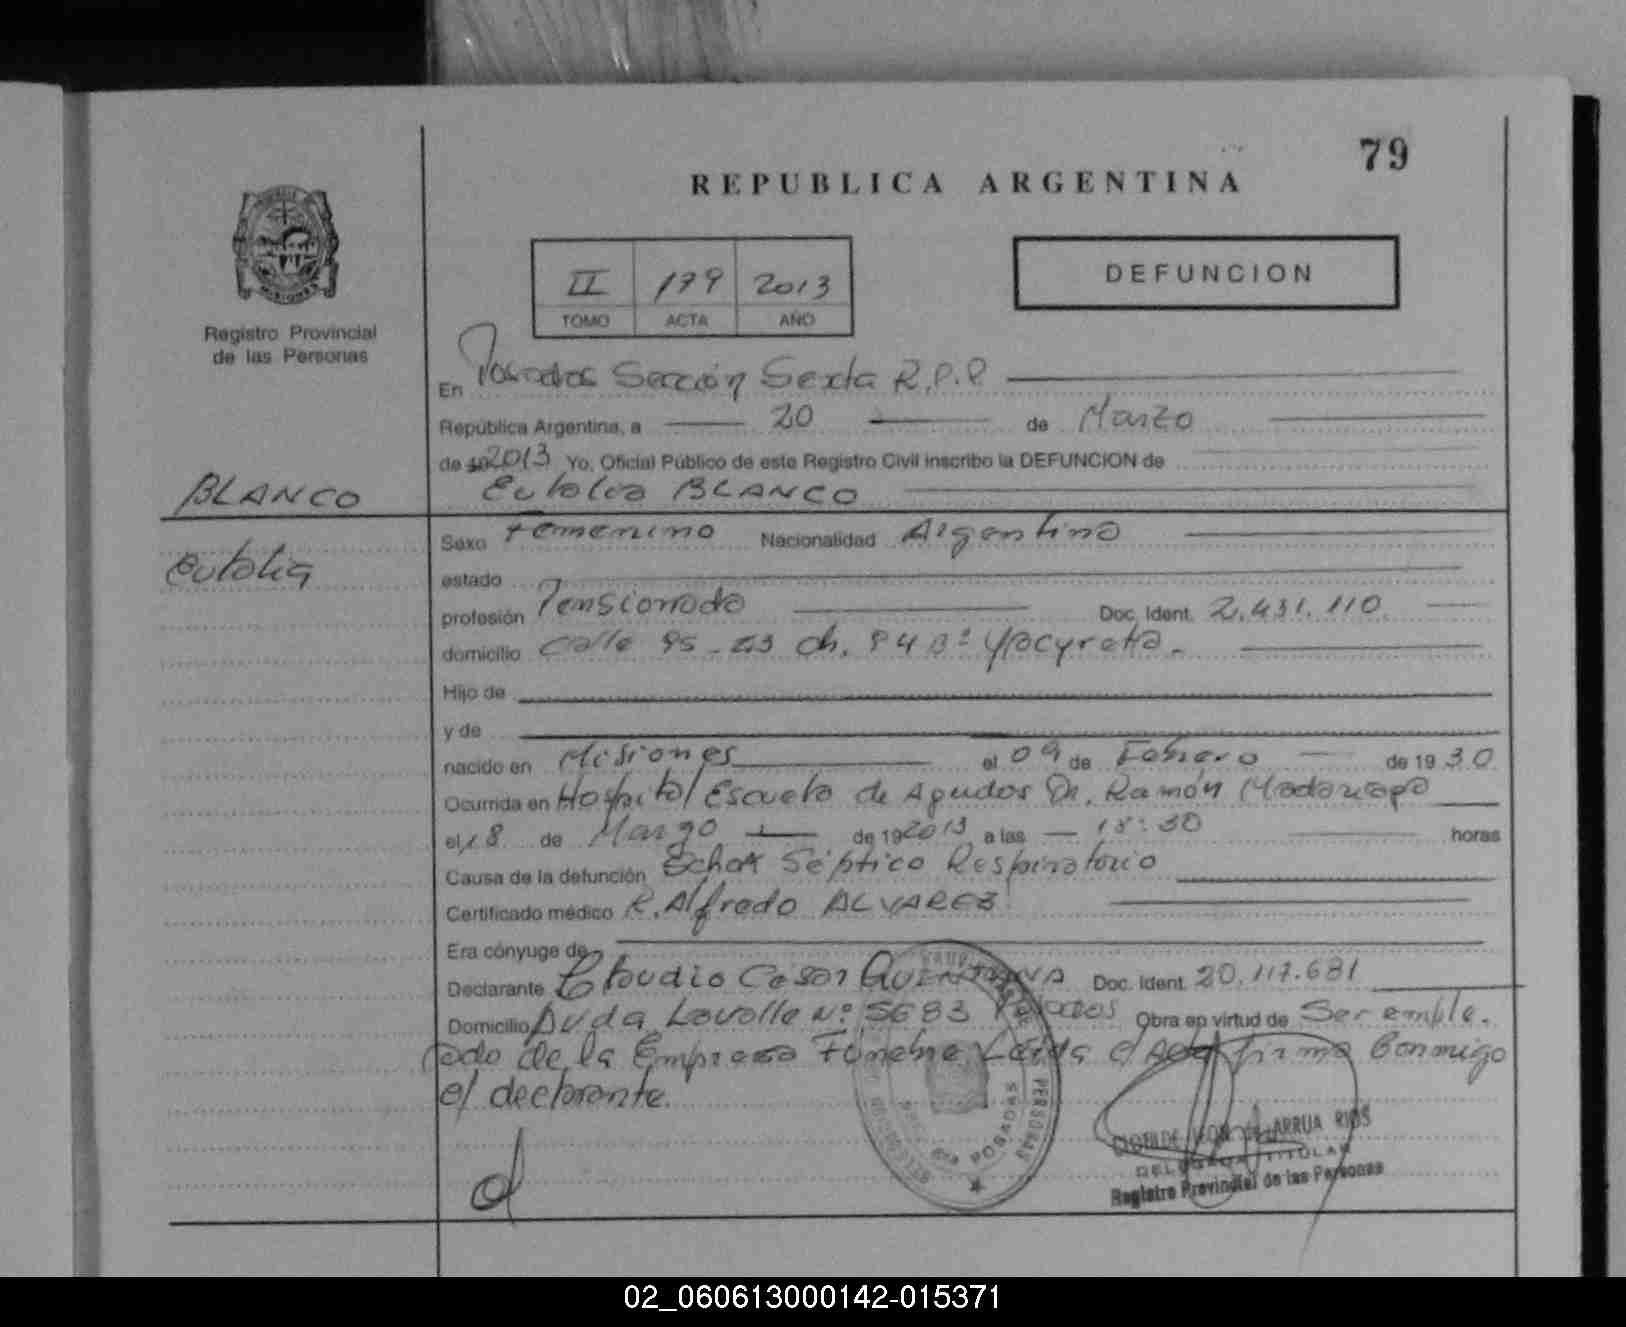 79
REPUBLICA ARGENTINA
II 179 2013
TOMO ACTA AÑO
DEFUNCION
Registro Provincial
de las Personas
En Posadas Sección Sexta R.P.P
República Argentina, a 20 de Marzo
de 2013 Yo, Oficial Público de este Registro Civil inscribo la DEFUNCION de
BLANCO
Eulalia BLANCO
Eulalia
Sexo Femenino Nacionalidad Argentina
estado
profesión Pensionada Doc. Ident. 2.431.110
domicilio Calle ch. B° Yacyreta.
Hijo de
y de
nacido en Misiones el 09 de Febrero de 1930
Ocurrida en Hospital Escuela de Agudos Dr. Ramón Madariaga
el 18 de Marzo de 192013 a las 18:30 horas
Causa de la defunción Schok Séptico Respiratorio
Certificado médico R. Alfredo ALVAREZ
Era cónyuge de
Declarante Claudio Cesar Doc. Ident. 20.117.681
Domicilio Avda Lavalle N° 5683 Posadas Obra en virtud de Ser emple.
ado de la Empresa Funebre firma Conmigo
el declarante.
POSADAS
ARRUA RIOS
DELEGADA TITULAR
Registro Provincial de las Personas
02_060613000142-015371